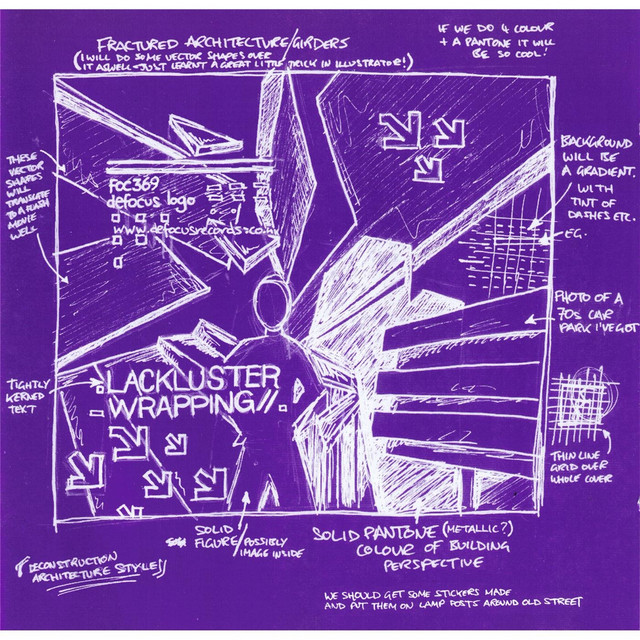 FRACTURED ARCHITECTURE/GIRDERS
(I WILL DO SOME VECTOR SHAPES OVER
IT ASWELL - JUST LEARNT A GREAT LITTLE TRICK IN ILLUSTRATOR!)
IF WE DO 4 COLOUR
+ A PANTONE IT WILL
BE SO COOL!
THESE
VECTOR
SHAPES
WILL
TRANSLATE
TO A FLASH
MOVIE
WELL
FOC369
defocus logo
www.defocusrecords.com
BACKGROUND
WILL BE
A GRADIENT.
WITH
TINT OF
DASHES ETC.
EG.
PHOTO OF A
70s CAR
PARK I'VE GOT
TIGHTLY
KERNED
TEXT
LACKLUSTER
WRAPPING//.
THIN LINE
GRID OVER
WHOLE COVER
SOLID
FIGURE/POSSIBLY
IMAGE INSIDE
SOLID PANTONE (METALLIC?)
COLOUR OF BUILDING
PERSPECTIVE
DECONSTRUCTION
ARCHITECTURE STYLE//
WE SHOULD GET SOME STICKERS MADE
AND PUT THEM ON LAMP POSTS AROUND OLD STREET